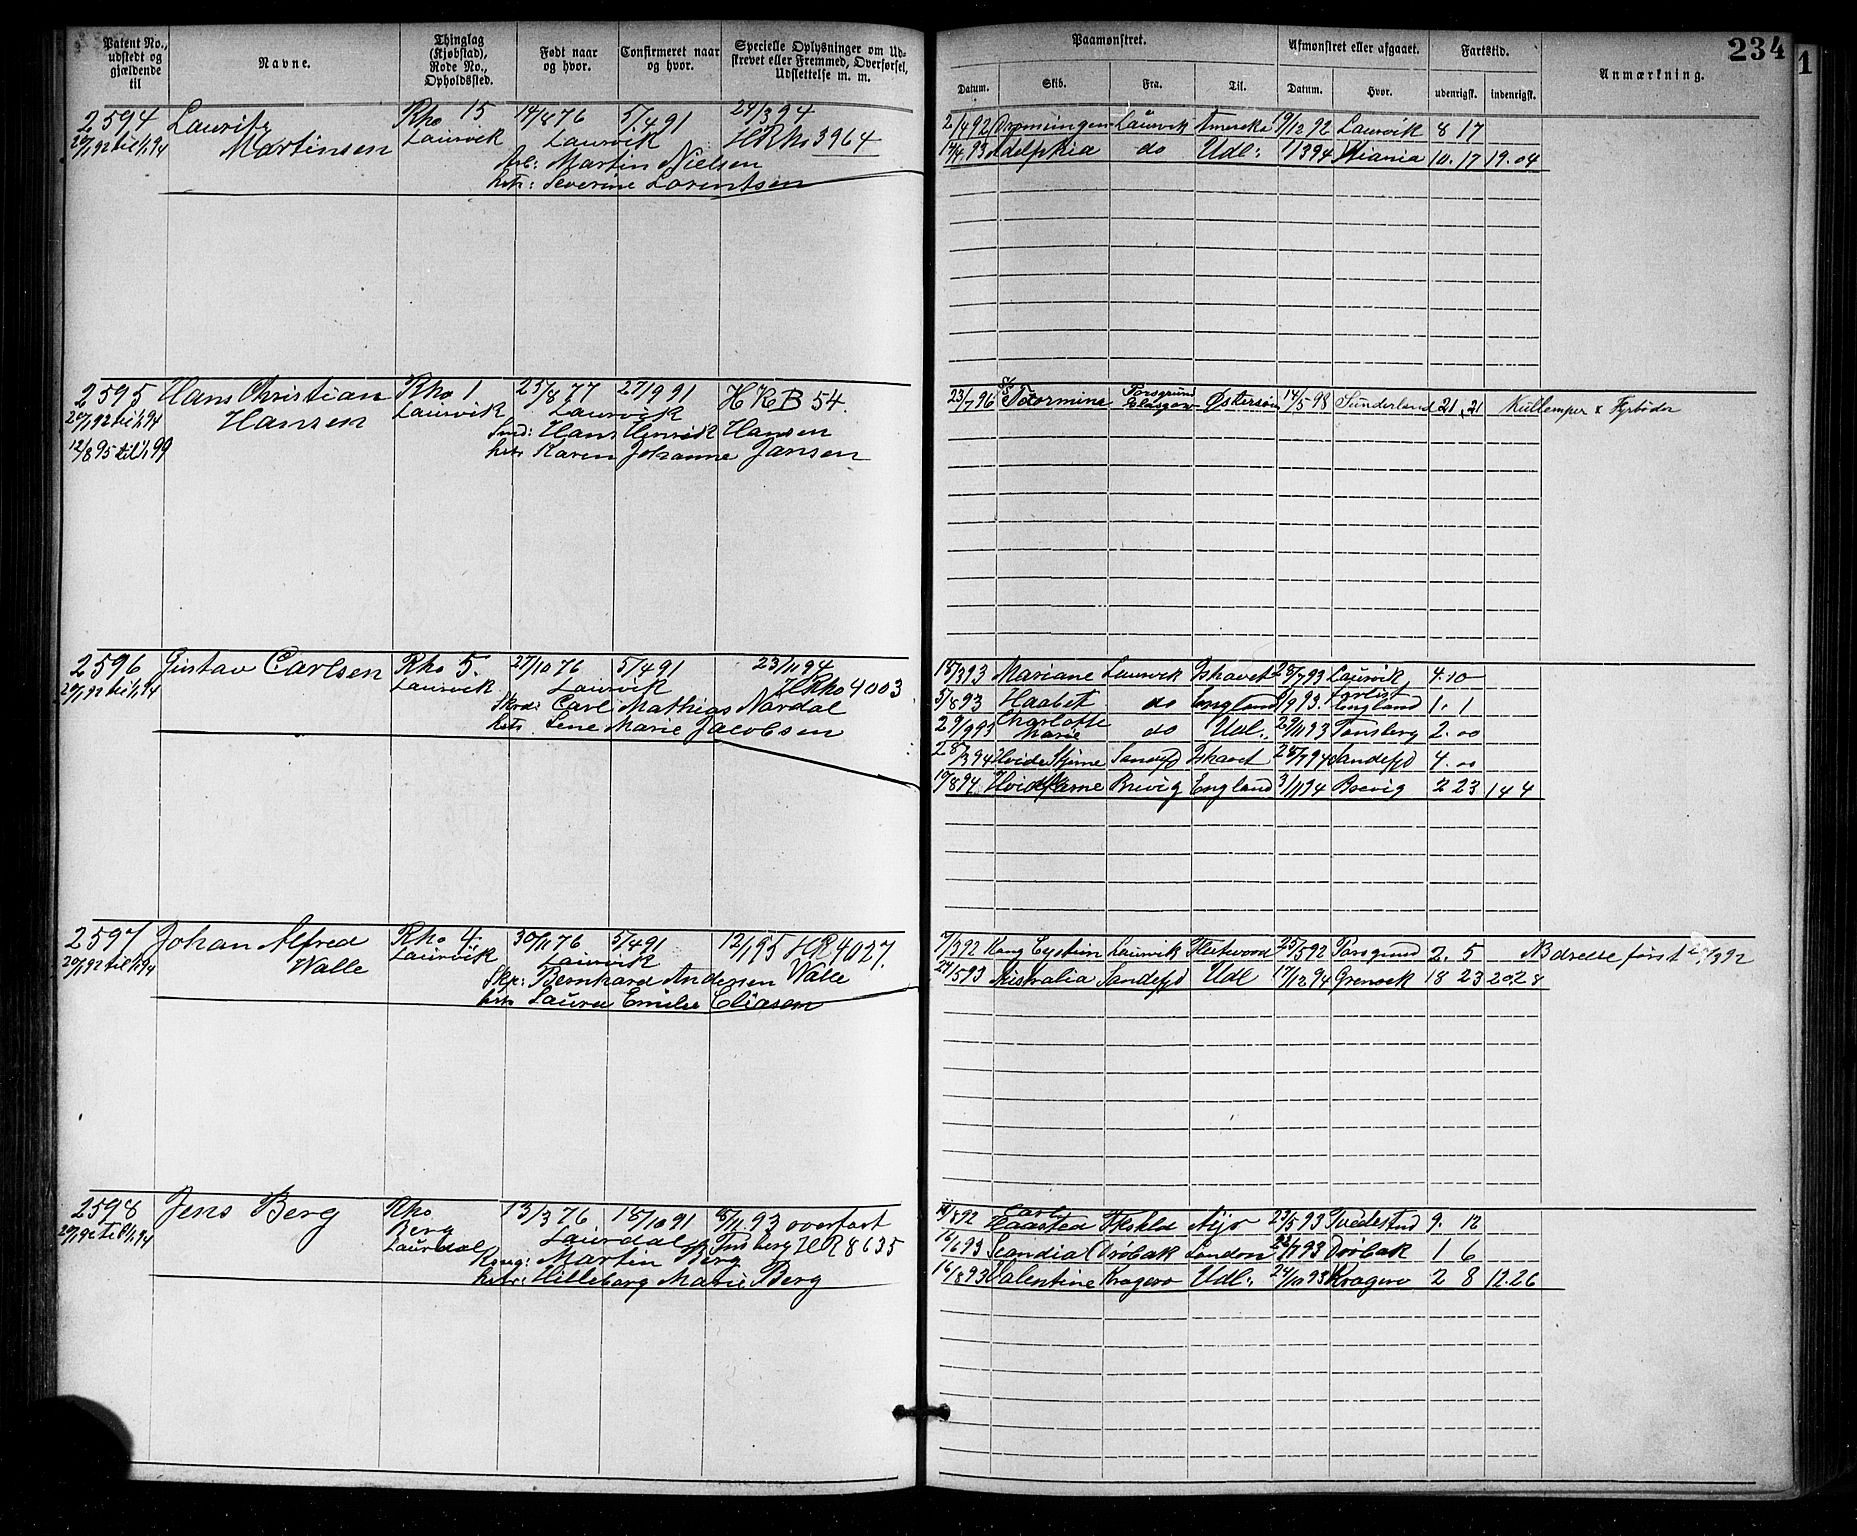 Patent No., udstedt og gjældende til
Navne.
Thinglag (Kjøbstad), Rode No., Opholdssted.
Født naar og hvor.
Confirmeret naar og hvor.
Specielle Oplysninger om Udskrevet eller Fremmed, Overførsel, Udslettelse m. m.
Paamønstret.
Afmønstret eller afgaaet.
Fartstid.
Anmærkning.
234
1
Datum.
Skib.
Fra.
Til.
Datum.
Hvor.
udenrigsk.
indenrigsk.
2594 Lauritz Rho 15 14/8 76 5/4 91 24/3 94
20/1 92 til 1/1 94 Martinsen Laurvik Laurvik HRho 3964
Martin Nielsen
Severine Lorentsen
2/4 92 Dronningen Laurvik Amerika 19/12 92 Laurvik 8 17
Adelphia do Udl: 1/3 94 10. 17 19. 04
2595 Hans Christian Rho 1 25/8 77 27/9 91 HRB 54.
20/1 92 til 1/1 94 Hansen Laurvik Laurvik
12/8 95 til 1/1 99
Smd: Hans Henrik Hansen
hstr Karen Johanne Jansen
23/7 96 S/S Taormina Porsgrund Glasgow Østersøen 14/5 98 Sunderland 21. 21 Kullemper & Fyrbøder
2596 Gustav Carlsen Rho 5. 27/10 76 5/4 91 23/11 94
20/1 92 til 1/1 94 Laurvik Laurvik HRho 4003
Carl Mathias Nordal
hstr Lene Marie Jacobsen
18/3 93 Mariane Laurvik Ishavet 28/7 93 Laurvik 4. 10
5/8 93 Haabet do England 1/9 93. forlist England 1. 1
29/9 93 Charlotte Marie do Udl: 29/11 93 Tønsberg 2. 00
28/3 94 Hvide Stjerne Sandefjd Ishavet 28/7 94 Sandefjd 4. 00
17/8 94 Brevig England 3/11 94 Brevig 2 23 14 4
2597 Johan Alfred Rho 4. 30/11 76 5/4 91 12/1 95 HR 4027.
20/1 92 til 1/1 94 Walle Laurvik Laurvik
Skp: Bernhard Andersen Walle
hstr Laura Emilie Eliasen
7/3 92 Kong Eystein Laurvik Fleetwood 25/5 92 Porsgrund 2. 5
24/5 93 Australia Sandefjd Udl 17/12 94 Grenock 18 23 20. 28
2598 Jens Berg Rho 13/3 76 18/10 91 8/11 93 overført
20/1 92 til 1/1 94 Berg Laurdal Laurdal Tønsberg HR 8635
Laurdal
Martin Berg
hstr: Hilleborg Marie Berg
11/8 92 Carl Haasted 23/5 93 Tvedestrnd 9. 12
16/6 93 Scandia Drøbak London 22/7 93 Drøbak 1 6
16/8 93 Valentine Kragerø Udl: 24/10 93 Kragerø 2 8 12. 26